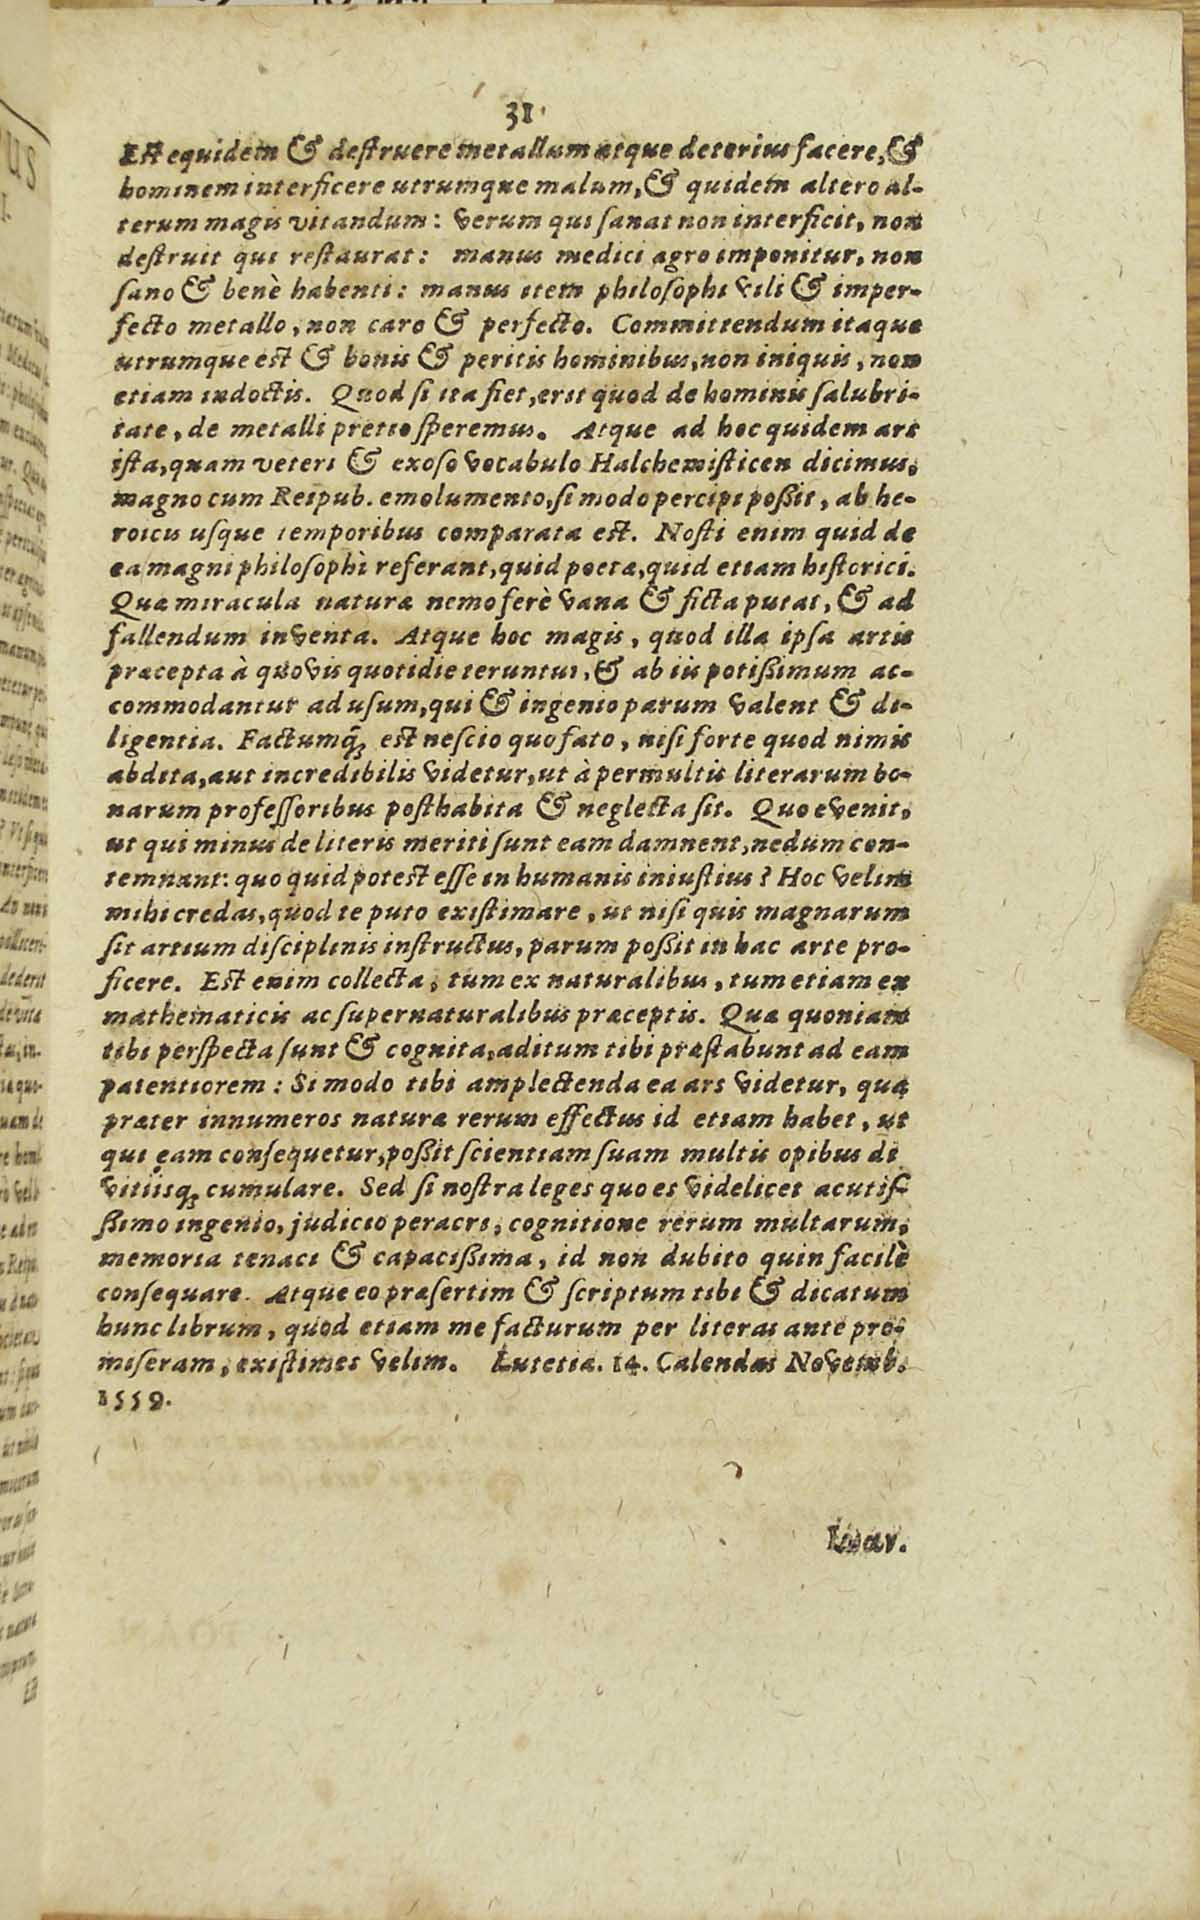 31
Est equidem & destruere metallum atque deterius facere, &
hominem interficere utrumque malum, & quidem altero al-
terum magis vitandum: verum qui sanat non interficit, non
destruit qui restaurat: manus medici ægro imponitur, non
sano & benè habenti: manus item philosophi vili & imper-
fecto metallo, non caro & perfecto. Committendum itaque
utrumque est & bonis & peritis hominibus, non iniquis, non
etiam indoctis. Quod si ita fiet, erit quod de hominis salubri-
tate, de metalli pretio speremus. Atque ad hoc quidem ars
ista, quam veteri & exoso vocabulo Halchemisticen dicimus,
magno cum Reipub. emolumento, si modo percipi poßit, ab he-
roicis usque temporibus comparata est. Nosti enim quid de
ea magni philosophi referant, quid poetæ, quid etiam historici.
Quæ miracula naturæ nemo ferè vana & ficta putat, & ad
fallendum inventa. Atque hoc magis, quod illa ipsa artis
præcepta à quovis quotidie teruntur, & ab iis potißimum ac-
commodantur ad usum, qui & ingenio parum valent & di-
ligentia. Factumq́; est nescio quo fato, nisi forte quod nimis
abdita, aut incredibilis videtur, ut à permultis literarum bo-
narum professoribus posthabita & neglecta sit. Quo evenit,
ut qui minus de literis meriti sunt eam damnent, nedum con-
temnant: quo quid potest esse in humanis iniustius? Hoc velim
mihi credas, quod te puto existimare, ut nisi quis magnarum
sit artium disciplinis instructus, parum poßit in hac arte pro-
ficere. Est enim collecta, tum ex naturalibus, tum etiam ex
mathematicis ac supernaturalibus præceptis. Quæ quoniam
tibi perspecta sunt & cognita, aditum tibi præstabunt ad eam
patentiorem: Si modo tibi amplectenda ea ars videtur, quæ
præter innumeros naturæ rerum effectus id etiam habet, ut
qui eam consequetur, poßit scientiam suam multis opibus di
vitiisq́; cumulare. Sed si nostra leges quo es videlicet acutis-
ßimo ingenio, judicio peracri, cognitione rerum multarum,
memoria tenaci & capacißima, id non dubito quin facilè
consequare. Atque eo præsertim & scriptum tibi & dicatum
hunc librum, quod etiam me facturum per literas ante pro-
miseram, existimes velim. Lutetiæ. 14. Calendas Novemb.
1559.